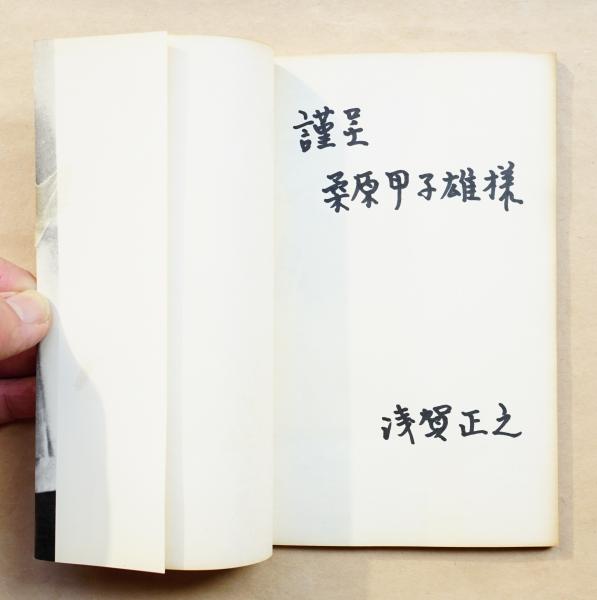 謹呈
桑原甲子雄様
浅賀正之